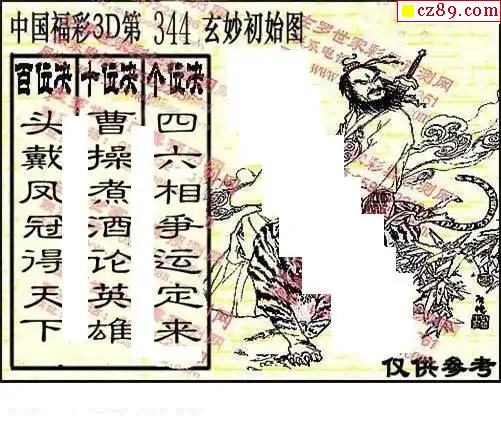 cz89.com
中国福彩3D第 344 玄妙初始图
百位决
十位决
个位决
头戴凤冠得天下
曹操煮酒论英雄
四六相争运定来
仅供参考